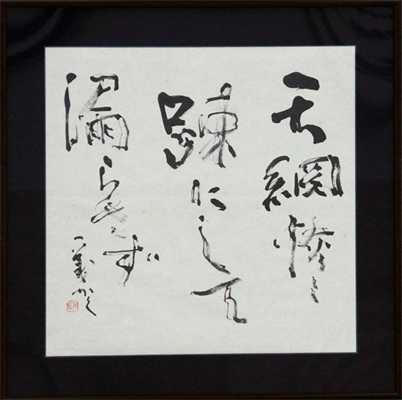 天網恢々
踈にして
漏らさず